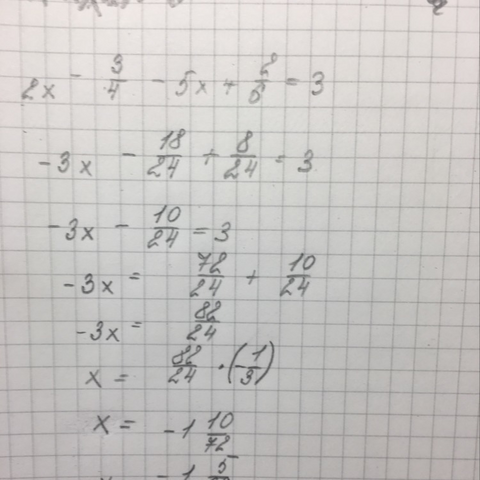 2x - 3/4 - 5x + 2/6 = 3
-3x - 18/24 + 8/24 = 3
-3x - 10/24 = 3
-3x = 72/24 + 10/24
-3x = 82/24
x = 82/24 · (-1/3)
x = -1 10/72